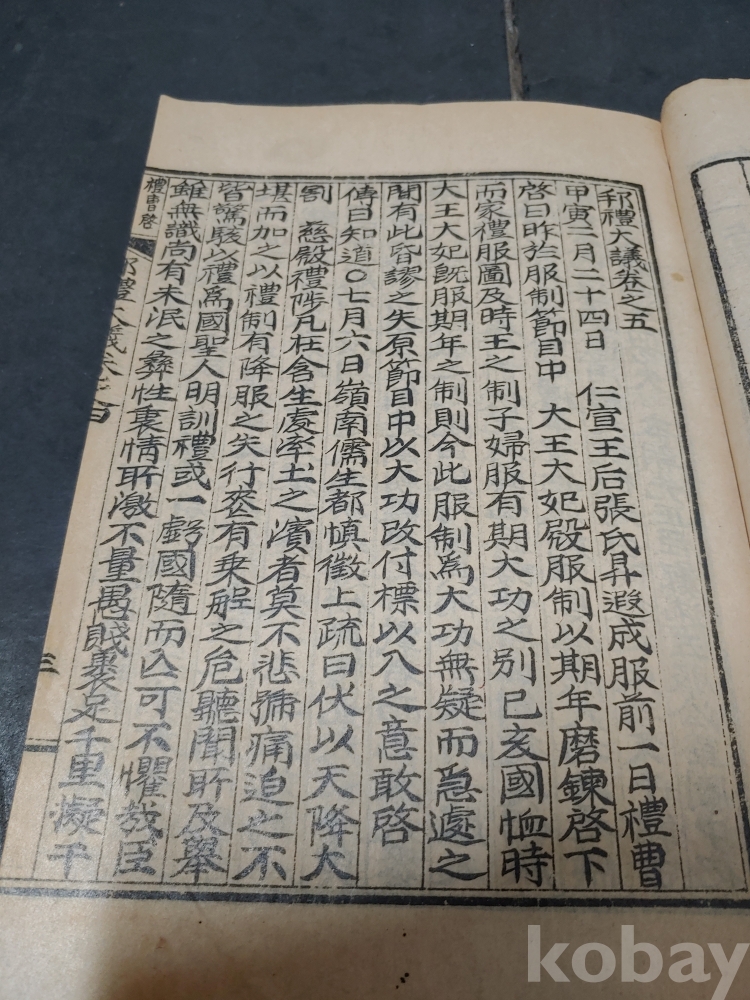 邦禮大議卷之五
甲寅二月二十四日 仁宣王后張氏昇遐成服前一日禮曹
啓曰昨於服制節目中 大王大妃殿服制以期年磨鍊啓下
而家禮服圖及時王之制子婦服有期大功之別己亥國恤時
大王大妃旣服期年之制則今此服制爲大功無疑而急遽之
間有此昏謬之失原節目中以大功改付標以入之意敢啓
傳曰知道〇七月六日嶺南儒生都愼徵上疏曰伏以天降大
割 慈殿禮陟凡在含生處率土之濱者莫不悲號痛迫之不
堪而加之以禮制有降服之失行喪有乘船之危聽聞所及擧
皆驚駭以禮爲國聖人明訓禮或一虧國隨而亡可不懼哉臣
雖無識尚有未泯之彝性裏情所激不量愚賤裹足千里凝干
禮曹啓
邦禮大議卷之五
三
kobay